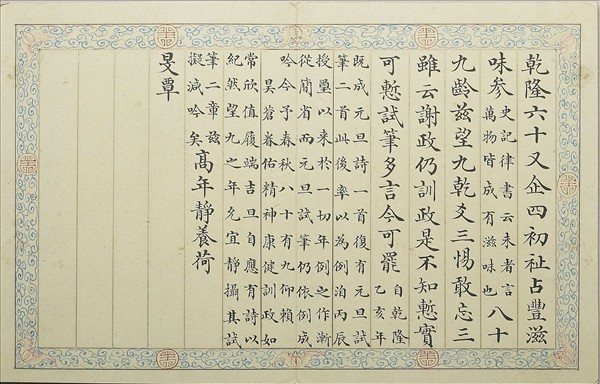 乾隆六十又企四初祉占豐滋
味参史記律書云未者言
萬物皆成有滋味也八十
九齡兹望九乾爻三惕敢忘三
雖云謝政仍訓政是不知慙實
可慙試筆多言今可罷自乾隆
乙亥年
既成元旦詩一首復有元旦試
筆二首此後率以為例洎丙辰
授璽以来於一切年例之作漸
從簡省而元旦試筆仍依例成
吟今予春秋八十有九仰賴
昊蒼眷佑精神康健訓政如
常欣值履端吉旦自應有詩以
紀然望九之年允宜靜攝其試
筆二章兹
擬減吟矣高年靜養荷
旻覃